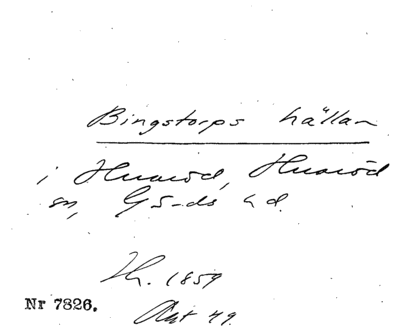 Bingstorps hällan
i Huaröd, Huaröd
sn, Gä-ds hd.
Th. 1859
Nr 7826.
Akt 49